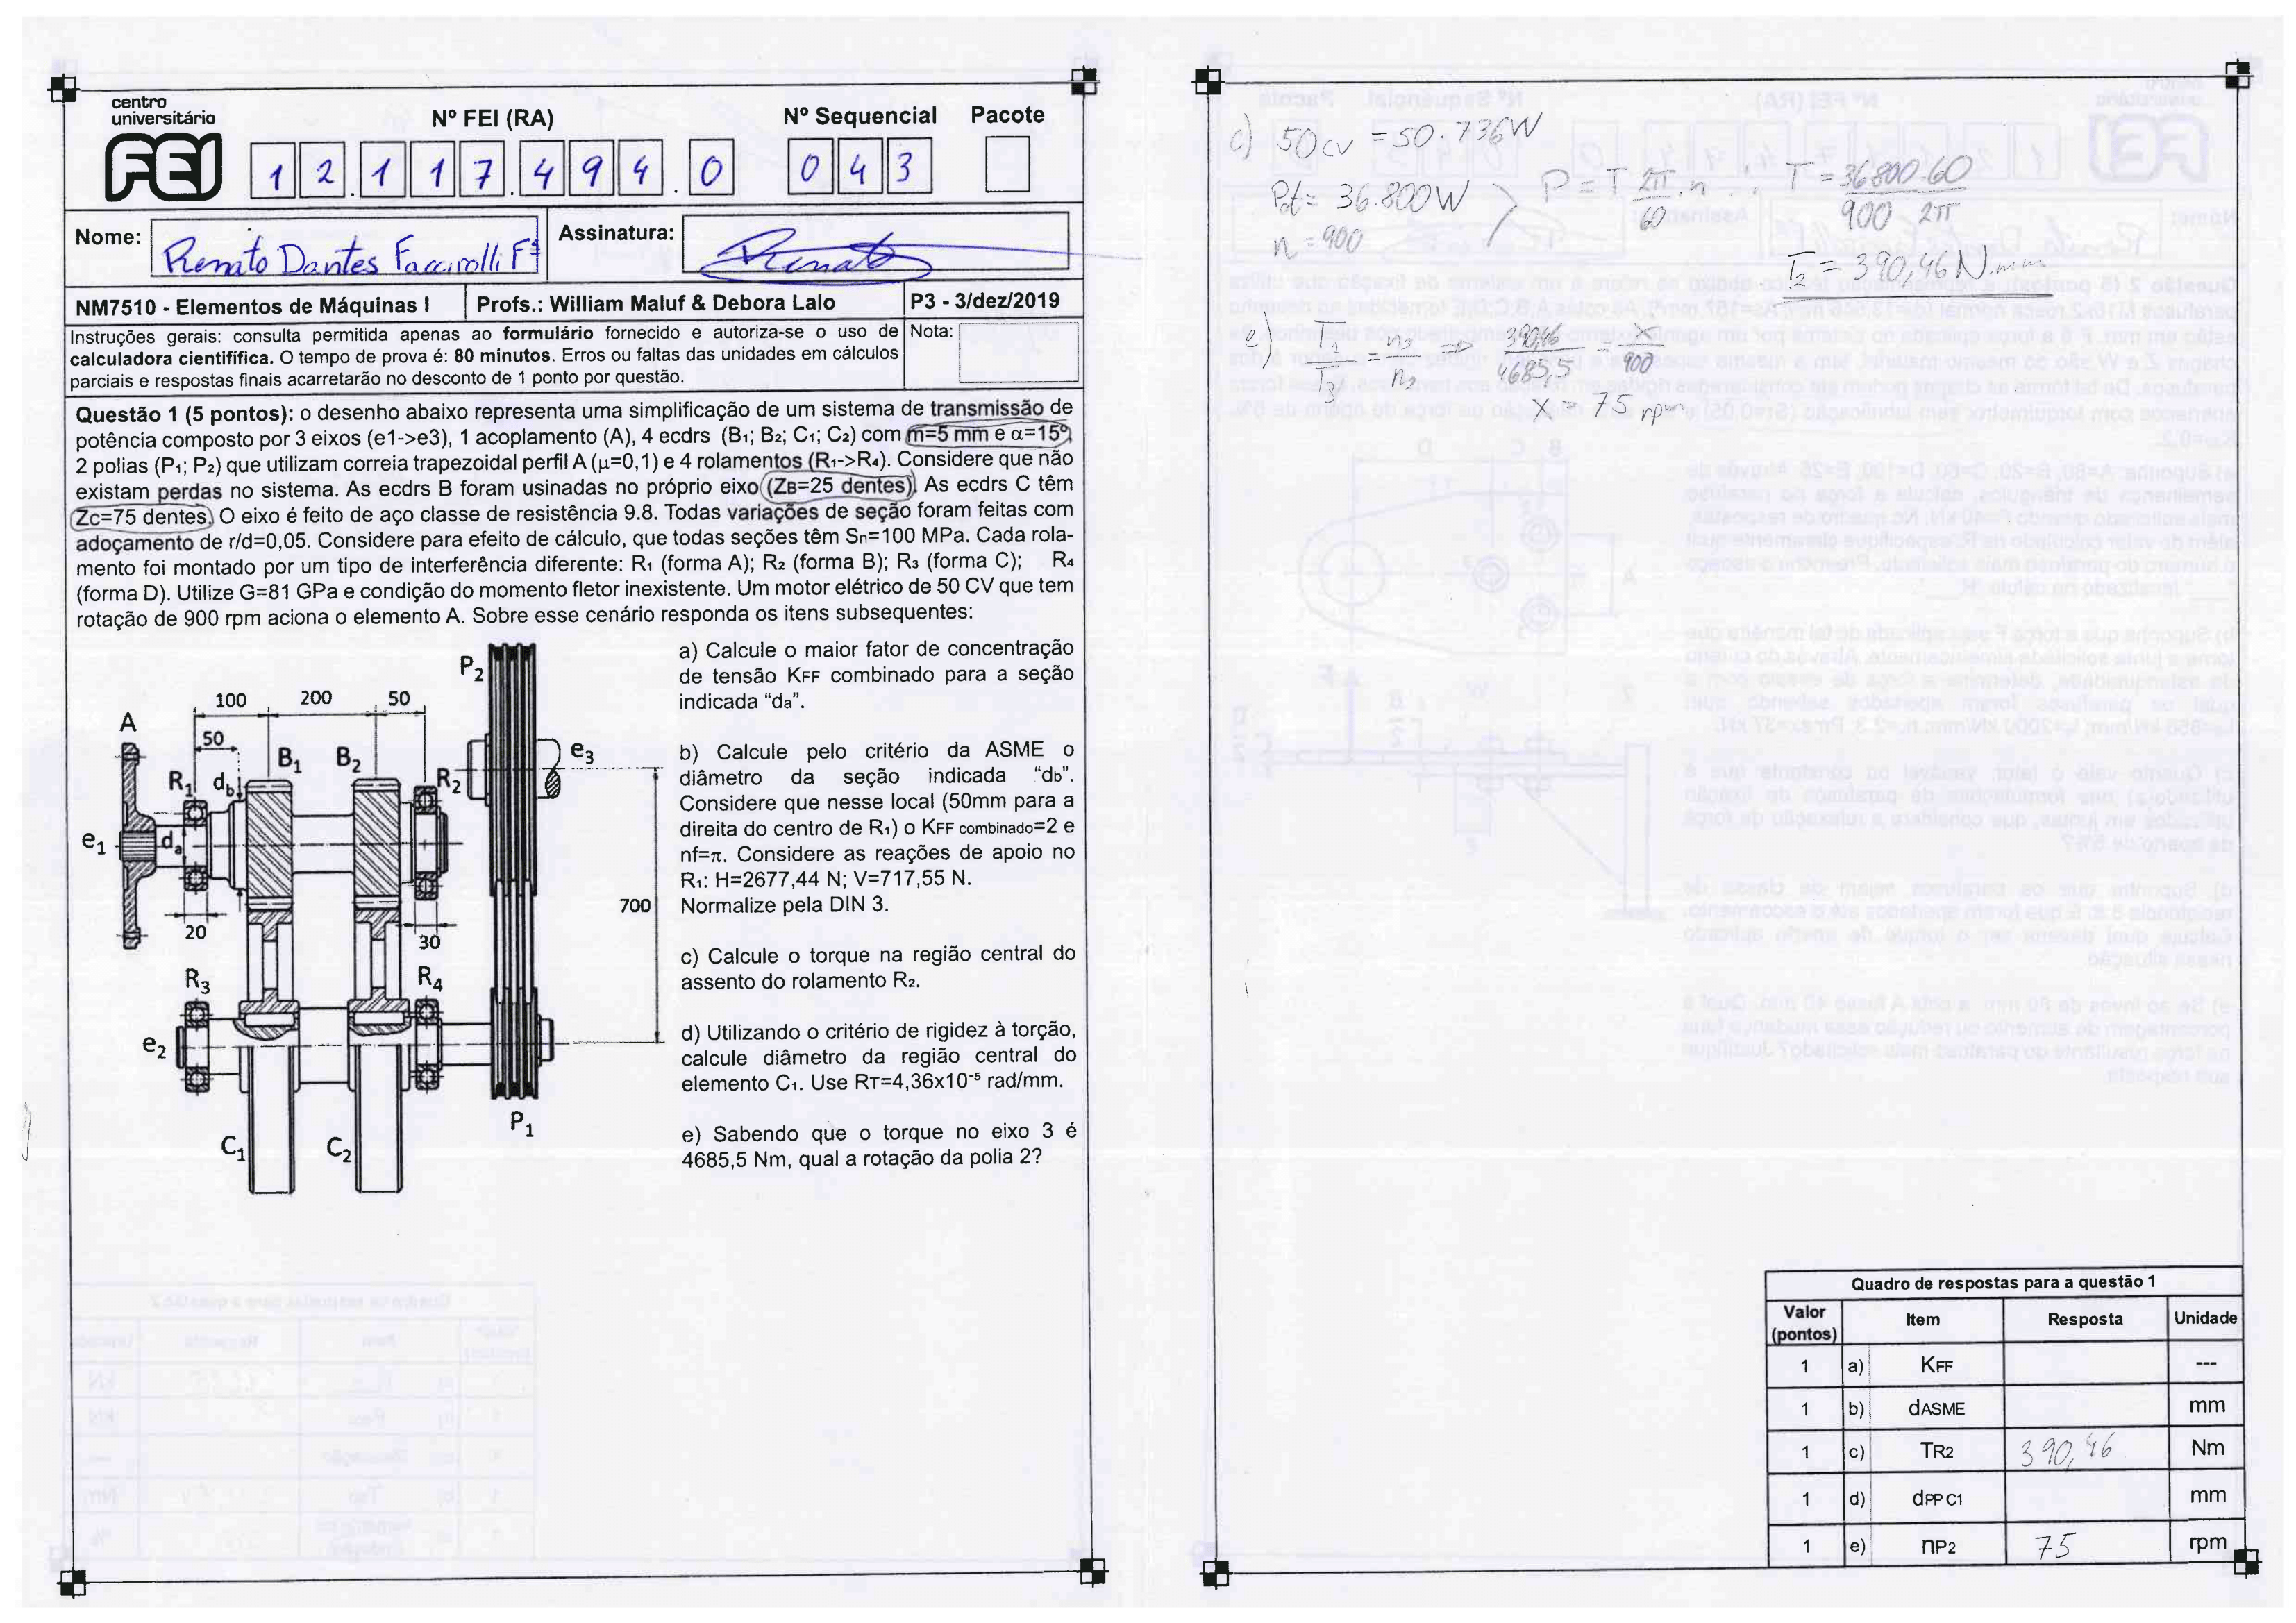 centro
universitário
FEI
Nº FEI (RA)
Nº Sequencial
Pacote
12.117.494.0
043
Nome:
Renato Dantes Faccirolli Fº
Assinatura:
Renato
NM7510 - Elementos de Máquinas I
Profs.: William Maluf & Debora Lalo
P3 - 3/dez/2019
Instruções gerais: consulta permitida apenas ao formulário fornecido e autoriza-se o uso de
calculadora cientifífica. O tempo de prova é: 80 minutos. Erros ou faltas das unidades em cálculos
parciais e respostas finais acarretarão no desconto de 1 ponto por questão.
Nota:
Questão 1 (5 pontos): o desenho abaixo representa uma simplificação de um sistema de transmissão de
potência composto por 3 eixos (e1->e3), 1 acoplamento (A), 4 ecdrs (B1; B2; C1; C2) com m=5 mm e α=15º,
2 polias (P1; P2) que utilizam correia trapezoidal perfil A (µ=0,1) e 4 rolamentos (R1->R4). Considere que não
existam perdas no sistema. As ecdrs B foram usinadas no próprio eixo (ZB=25 dentes). As ecdrs C têm
Zc=75 dentes. O eixo é feito de aço classe de resistência 9.8. Todas variações de seção foram feitas com
adoçamento de r/d=0,05. Considere para efeito de cálculo, que todas seções têm Sn=100 MPa. Cada rola-
mento foi montado por um tipo de interferência diferente: R1 (forma A); R2 (forma B); R3 (forma C); R4
(forma D). Utilize G=81 GPa e condição do momento fletor inexistente. Um motor elétrico de 50 CV que tem
rotação de 900 rpm aciona o elemento A. Sobre esse cenário responda os itens subsequentes:
a) Calcule o maior fator de concentração
de tensão KFF combinado para a seção
indicada "da".
b) Calcule pelo critério da ASME o
diâmetro da seção indicada "db".
Considere que nesse local (50mm para a
direita do centro de R1) o KFF combinado=2 e
nf=π. Considere as reações de apoio no
R1: H=2677,44 N; V=717,55 N.
Normalize pela DIN 3.
c) Calcule o torque na região central do
assento do rolamento R2.
d) Utilizando o critério de rigidez à torção,
calcule diâmetro da região central do
elemento C1. Use RT=4,36x10-5 rad/mm.
e) Sabendo que o torque no eixo 3 é
4685,5 Nm, qual a rotação da polia 2?
P2
100 200 50
A
50
B1 B2
e3
R1 db
R2
e1
da
700
20
30
R3
R4
e2
P1
C1 C2
c) 50 cv = 50.736W
Pot = 36.800W
n = 900
P = T 2π/60 . n ∴ T = 36800.60/900 2π
T2 = 390,46 N.mm
e) T2/T3 = n3/n2 => 390,46/4685,5 = x/900
x = 75 rpm
Quadro de respostas para a questão 1
Valor
(pontos)
Item
Resposta
Unidade
1 a) KFF ---
1 b) dASME mm
1 c) TR2 390,46 Nm
1 d) dPP C1 mm
1 e) nP2 75 rpm